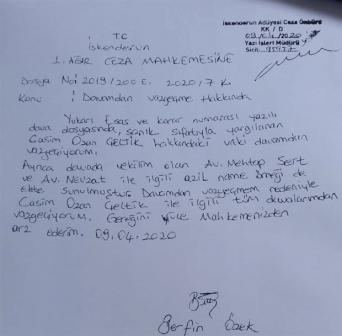 İskenderun Adliyesi Ceza Önbüro
KK / D
09/04/2020
Yazı İşleri Müdürü
Sicil:
T.C
İskenderun
1. AĞIR CEZA MAHKEMESİNE
Dosya No: 2019/200 E. 2020/7 K.
Konu : Davamdan vazgeçme Hakkında
Yukarı Esas ve karar numarası yazılı
dava dosyasında, sanık sıfatıyla yargılanan
Casim Ozan Çeltik hakkındaki davamdan
vazgeçiyorum.
Ayrıca davada vekilim olan Av. Mehtap Sert
ve Av. Nevzat ile ilgili azil name örneği de
ekte sunulmuştur. Davamdan vazgeçmem nedeniyle
Casim Ozan Çeltik ile ilgili tüm davalarımdan
vazgeçiyorum. Gereğini yüce Mahkemenizden
arz ederim. 09.04.2020
Berfin Özek